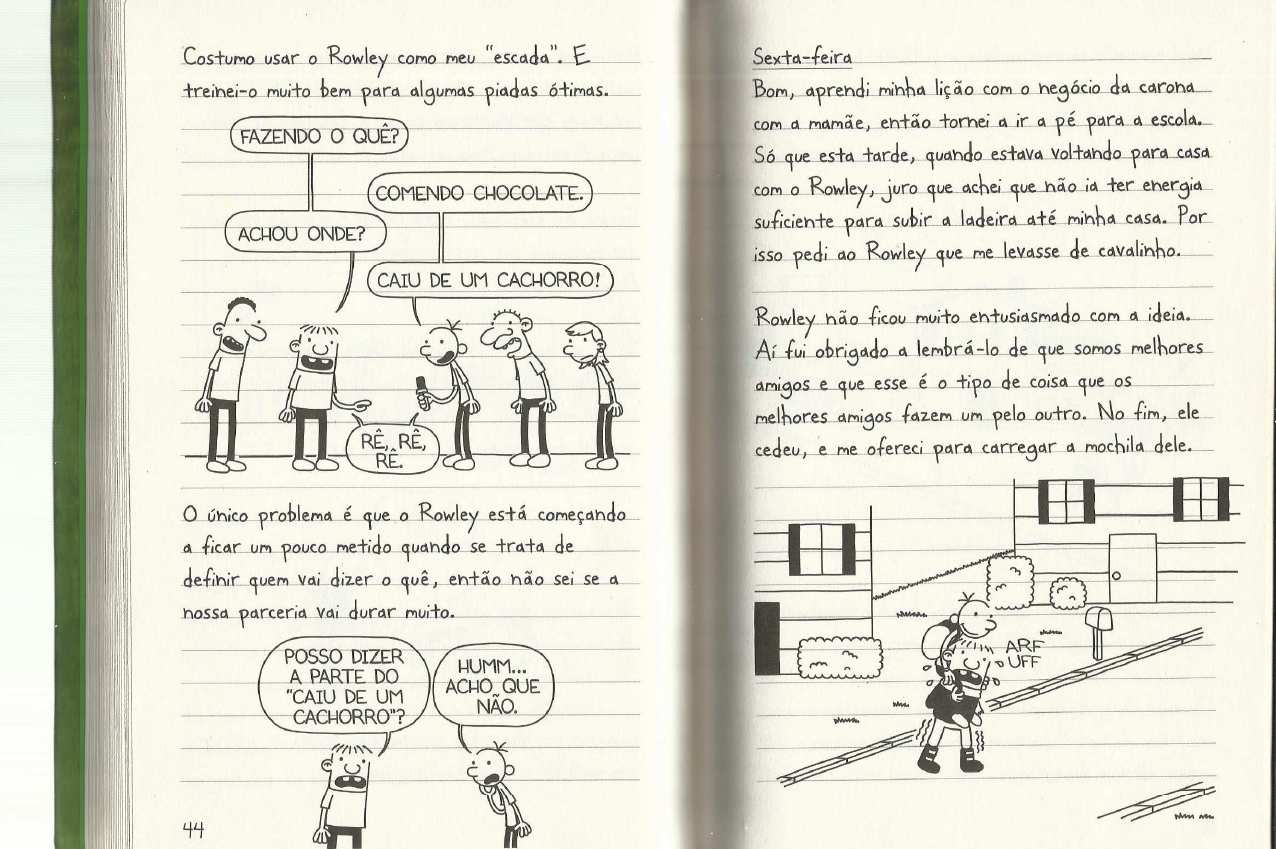 Costumo usar o Rowley como meu "escada". E
treinei-o muito bem para algumas piadas ótimas.
FAZENDO O QUÊ?
COMENDO CHOCOLATE.
ACHOU ONDE?
CAIU DE UM CACHORRO!
RÊ, RÊ,
RÊ.
O único problema é que o Rowley está começando
a ficar um pouco metido quando se trata de
definir quem vai dizer o quê, então não sei se a
nossa parceria vai durar muito.
POSSO DIZER
A PARTE DO
"CAIU DE UM
CACHORRO"?
HUMM...
ACHO QUE
NÃO.
44
Sexta-feira
Bom, aprendi minha lição com o negócio da carona
com a mamãe, então tornei a ir a pé para a escola.
Só que esta tarde, quando estava voltando para casa
com o Rowley, juro que achei que não ia ter energia
suficiente para subir a ladeira até minha casa. Por
isso pedi ao Rowley que me levasse de cavalinho.
Rowley não ficou muito entusiasmado com a ideia.
Aí fui obrigado a lembrá-lo de que somos melhores
amigos e que esse é o tipo de coisa que os
melhores amigos fazem um pelo outro. No fim, ele
cedeu, e me ofereci para carregar a mochila dele.
ARF
UFF